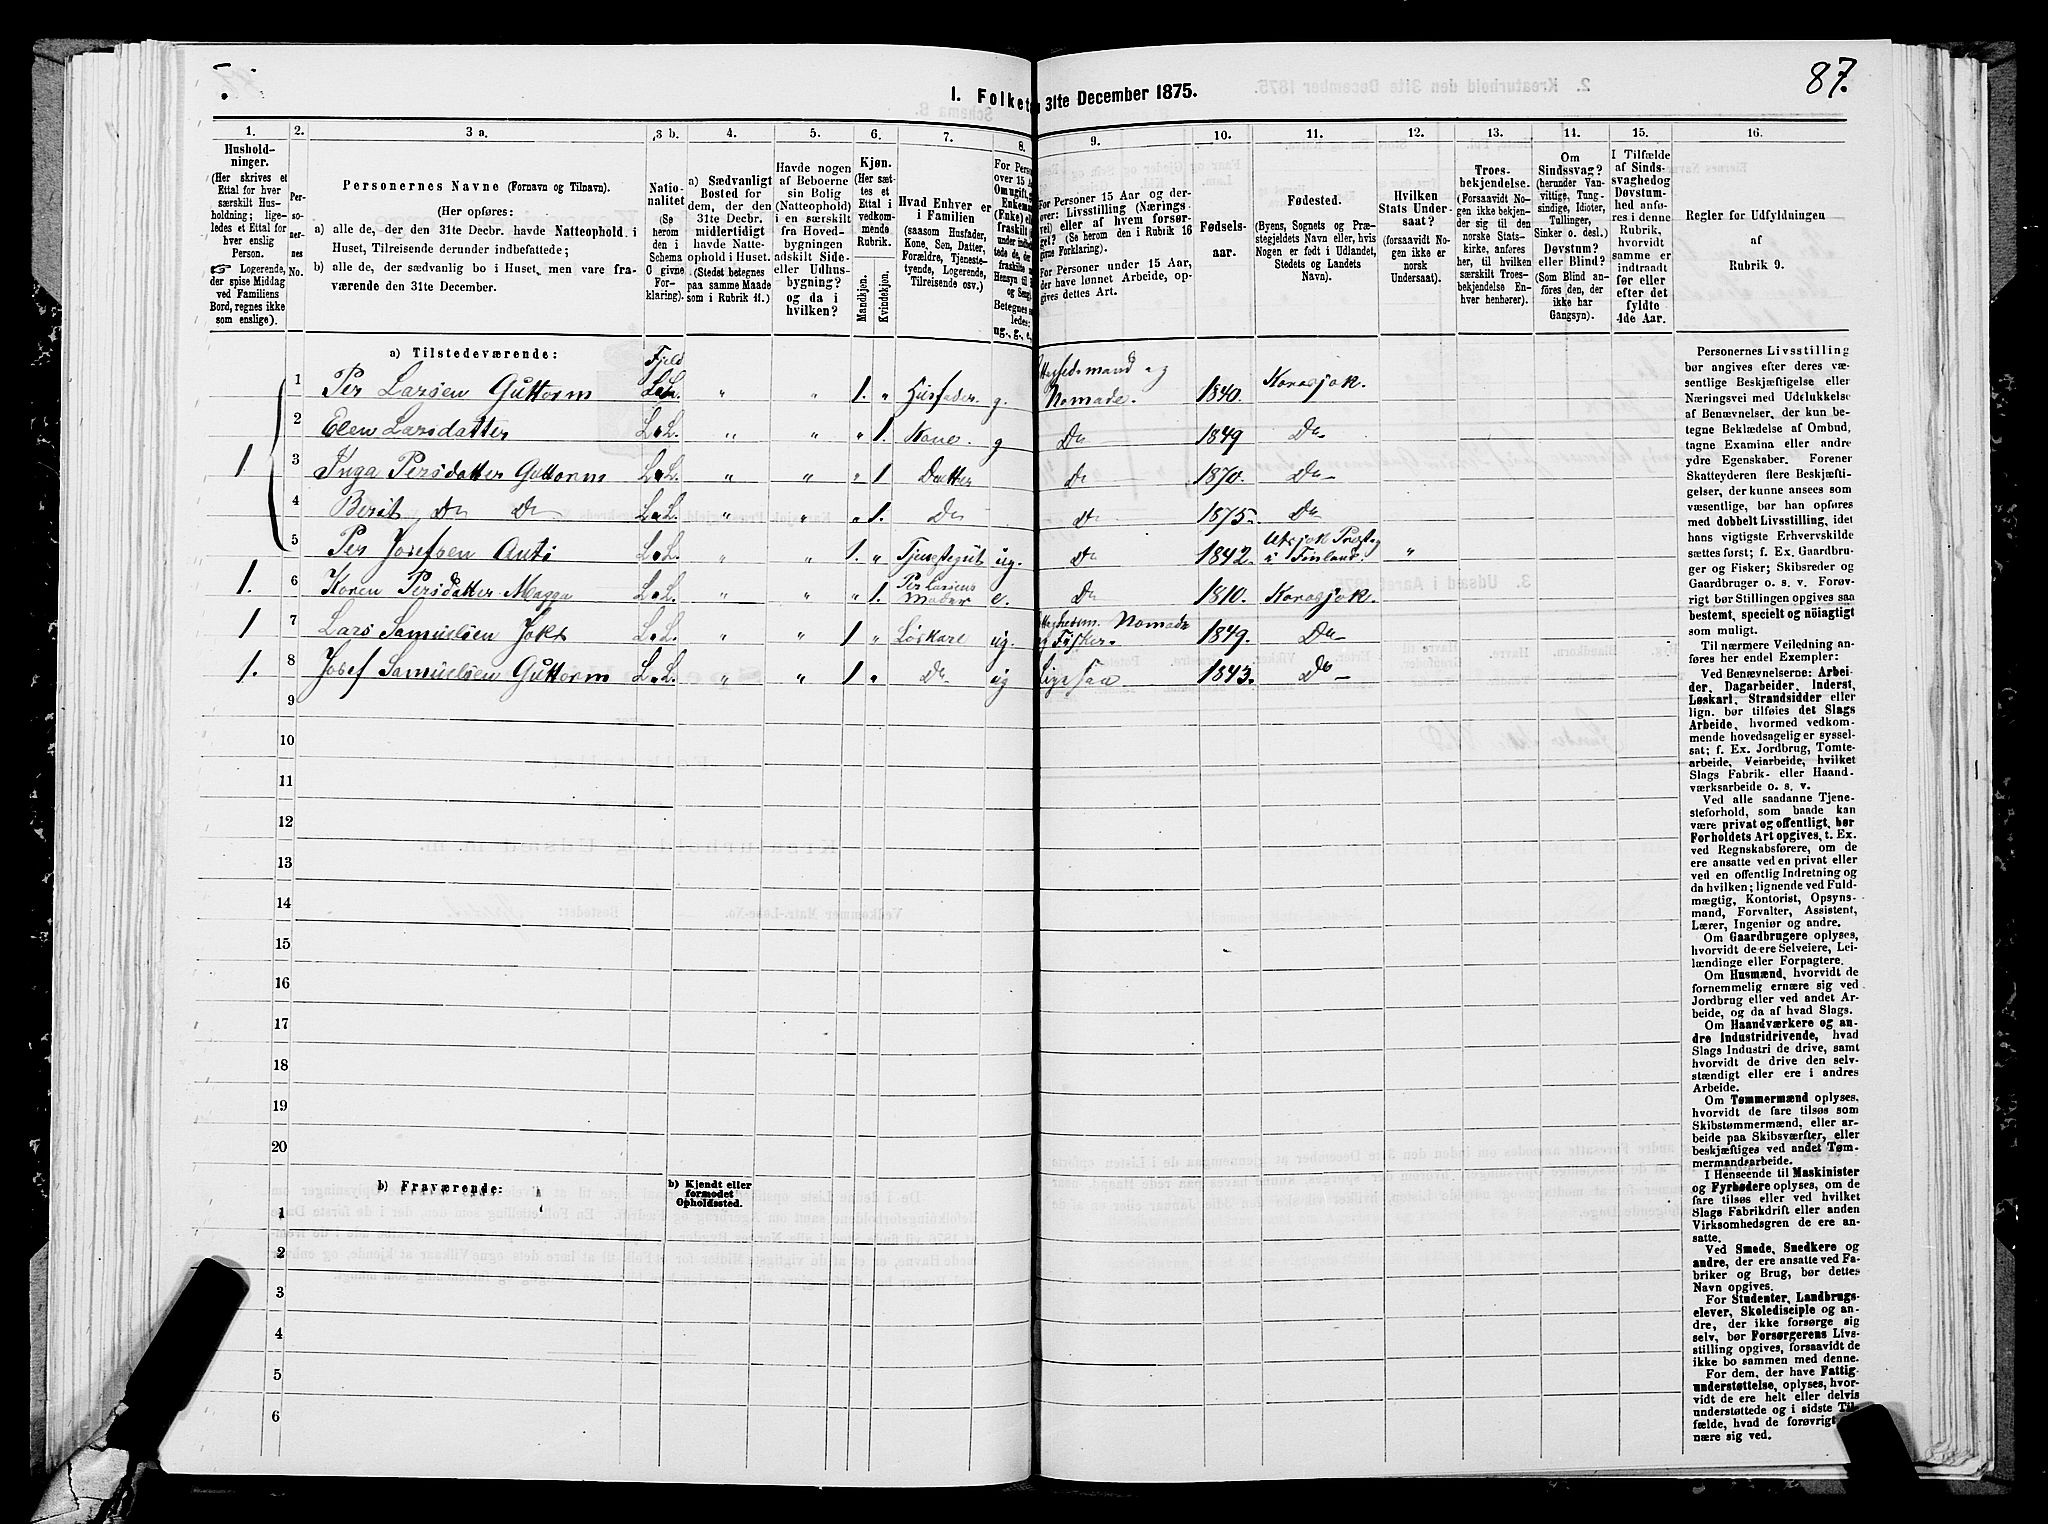 87.
I. Folket
31te December 1875.
1.
2.
3 a.
3 b.
4.
5.
6.
7.
8.
9.
10.
11.
12.
13.
11.
15.
16.
Hushold-
ninger.
(Her skrives et
Ettal for hver
særskilt Hus-
holdning; lige-
ledes et Ettal for
hver enslig
Person.
Logerende,
der spise Middag
ved Familiens
Bord, regnes ikke
som enslige).
Per-
so-
ner-
nes
No.
Personernes Navne (Fornavn og Tilnavn).
(Her opføres:
a) alle de, der den 31te Decbr. havde Natteophold i
Huset, Tilreisende derunder indbefattede;
b) alle de, der sædvanlig bo i Huset, men vare fra-
værende den 31te December.
Natio-
nalitet
(Se
herom
den i
Schema
C givne
For-
klaring).
a) Sædvanligt
Bosted for
dem, der den
31te Decbr.
midlertidigt
havde Natte-
ophold i Huset.
(Stedet betegnes
paa samme Maade
som i Rubrik 11.)
Havde nogen
af Beboerne
sin Bolig
(Natteophold)
i en særskilt
fra Hoved-
bygningen
adskilt Side-
eller Udhus-
bygning?
og da i
hvilken?
Kjøn.
(Her sæt-
tes et
Ettal i
vedkom-
mende
Rubrik.
Mandkjøn.
Kvindekjøn.
Hvad Enhver er
i Familien
(saasom Husfader,
Kone, Søn, Datter,
Forældre, Tjeneste-
tyende, Logerende,
Tilreisende osv.)
For Personer 15 Aar og der-
over: Livsstilling (Nærings-
vei) eller af hvem forsør-
get? (Se herom den i Rubrik 16
givne Forklaring).
For Personer under 15 Aar,
der have lønnet Arbeide, op-
gives dettes Art.
Fødsels-
aar.
Fødested.
(Byens, Sognets og Præ-
stegjeldets Navn eller, hvis
Nogen er født i Udlandet,
Stedets og Landets
Navn).
Hvilken
Stats Under-
saat?
(forsaavidt No-
gen ikke er
norsk
Undersaat).
Troes-
bekjendelse.
(Forsaavidt No-
gen ikke bekjen-
der sig til den
norske Stats-
kirke, anføres
her, til hvilken
særskilt Troes-
bekjendelse En-
hver henhører).
Om
Sindssvag?
(herunder Van-
vittige, Tung-
sindige, Idioter,
Tullinger,
Sinker o. desl.)
Døvstum?
eller Blind?
(Som Blind an-
føres den, der
ikke har
Gangsyn).
I Tilfælde
af Sinds-
svaghed og
Døvstum-
hed anfø-
res i denne
Rubrik,
hvorvidt
samme er
indtraadt
før eller
efter det
fyldte
4de Aar.
Regler for Udfyldningen
af
Rubrik 9.
a) Tilstedeværende:
Fjeld
1 Per Larsen Guttorm L.L. " " 1. " Husfader g. Nomade. 1840. Karasjok.
2 Elen Larsdatter L.L. " " " 1. Kone g Do 1849 Do
1 3 Inga Persdatter Guttorm L.L. " " " 1 Datter Do 1870. Do
4 Berit Do Do L.L. " " " 1. Do Do 1875. Do
5 Per Josefsen Anti L.L. " " 1. " Tjenestegut ug. Do 1842. Utsjok Præstg i Finland. "
1. 6 Karen Persdatter Magga L.L. " " " 1. Per Larsens Moder e. Do 1810. Karasjok.
1 7 Lars Samuelsen Joks L.L. " " 1 " Løskare ug. Nomade og Fisker. 1849. Do
1. 8 Josef Samuelsen Guttorm L.L. " " 1 " Do ug Ligesaa 1843. Do
9
10
11
12
13
14
15
16
17
18
19
20
b) Fraværende:
b) Kjendt eller
formodet
Opholdssted.
1
2
3
4
5
6
Personernes Livsstilling
bør angives efter deres væ-
sentlige Beskjæftigelse eller
Næringsvei med Udelukkelse
af Benævnelser, der kun be-
tegne Beklædelse af Ombud,
tagne Examina eller andre
ydre Egenskaber. Forener
Skatteyderen flere Beskjæfti-
gelser, der kunne ansees som
væsentlige, bør han opføres
med dobbelt Livsstilling, idet
hans vigtigste Erhvervskilde
sættes først; f. Ex. Gaardbru-
ger og Fisker; Skibsreder og
Gaardbruger o. s. v. Forøv-
rigt bør Stillingen opgives saa
bestemt, specielt og nøiagtigt
som muligt.
Til nærmere Veiledning an-
føres her endel Exempler:
Ved Benævnelserne: Arbei-
der, Dagarbeider, Inderst,
Løskarl, Strandsidder eller
lign. bør tilføies det Slags
Arbeide, hvormed vedkom-
mende hovedsagelig er syssel-
sat; f. Ex. Jordbrug, Tomte-
arbeide, Veiarbeide, hvilket
Slags Fabrik- eller Haand-
værksarbeide o. s. v.
Ved alle saadanne Tjene-
steforhold, som baade kan
være privat og offentligt, bør
Forholdets Art opgives, t. Ex.
ved Regnskabsførere, om de
ere ansatte ved en privat eller
ved en offentlig Indretning og
da hvilken; lignende ved Fuld-
mægtig, Kontorist, Opsyns-
mand, Forvalter, Assistent,
Lærer, Ingeniør og andre.
Om Gaardbrugere oplyses,
hvorvidt de ere Selveiere, Lei-
lændinge eller Forpagtere.
Om Husmænd, hvorvidt de
fornemmelig ernære sig ved
Jordbrug eller ved andet Ar-
beide, og da af hvad Slags.
Om Haandværkere og an-
dre Industridrivende, hvad
Slags Industri de drive, samt
hvorvidt de drive den selv-
stændigt eller ere i andres
Arbeide.
Om Tømmermænd oplyses,
hvorvidt de fare tilsøs som
Skibstømmermænd, eller ar-
beide paa Skibsværfter, eller
beskjæftiges ved andet Tøm-
mermandsarbeide.
I Henseende til Maskinister
og Fyrbødere oplyses, om de
fare tilsøs eller ved hvilket
Slags Fabrikdrift eller anden
Virksomhedsgren de ere an-
satte.
Ved Smede, Snedkere og
andre, der ere ansatte ved Fa-
briker og Brug, bør dettes
Navn opgives.
For Studenter, Landbrugs-
elever, Skoledisciple og an-
dre, der ikke forsørge sig
selv, bør Forsørgerens Livs-
stilling opgives, forsaavidt de
ikke bo sammen med denne.
For dem, der have Fattig-
understøttelse, oplyses, hvor-
vidt de ere helt eller delvis
understøttede og i sidste Til-
fælde, hvad de forøvrigt
nære sig ved.